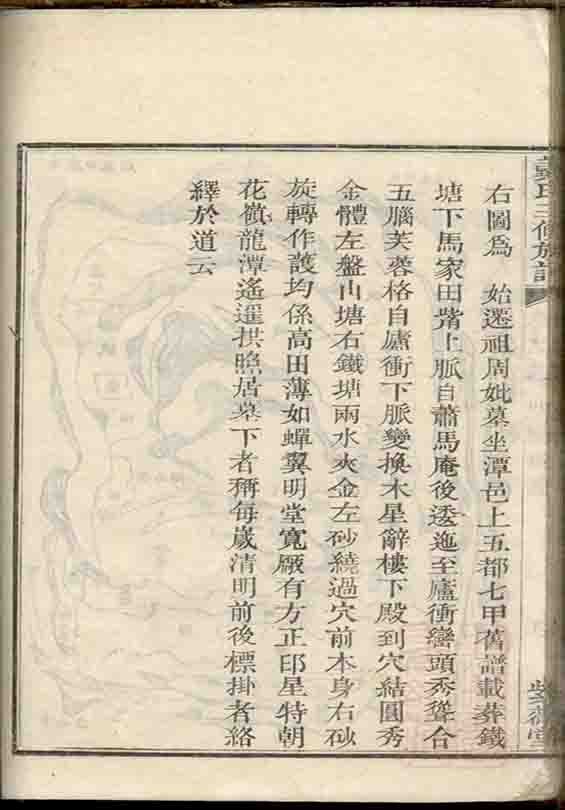 右圖爲　始遷祖周妣墓坐潭邑上五都七甲舊譜載葬鐵
塘下馬家田墈上脈自蕭馬庵後逶迤至廬衝巒頭秀聳合
五腦芙蓉格自廬衝下脈變換木星辭樓下殿到穴結圓秀
金體左盤山塘右鐵塘兩水夾金左砂繞過穴前本身右砂
旋轉作護均係高田薄如蟬翼明堂寬厰有方正印星特朝
花嶺龍潭遙遥拱照居墓下者稱每歲清明前後標掛者絡
繹於道云